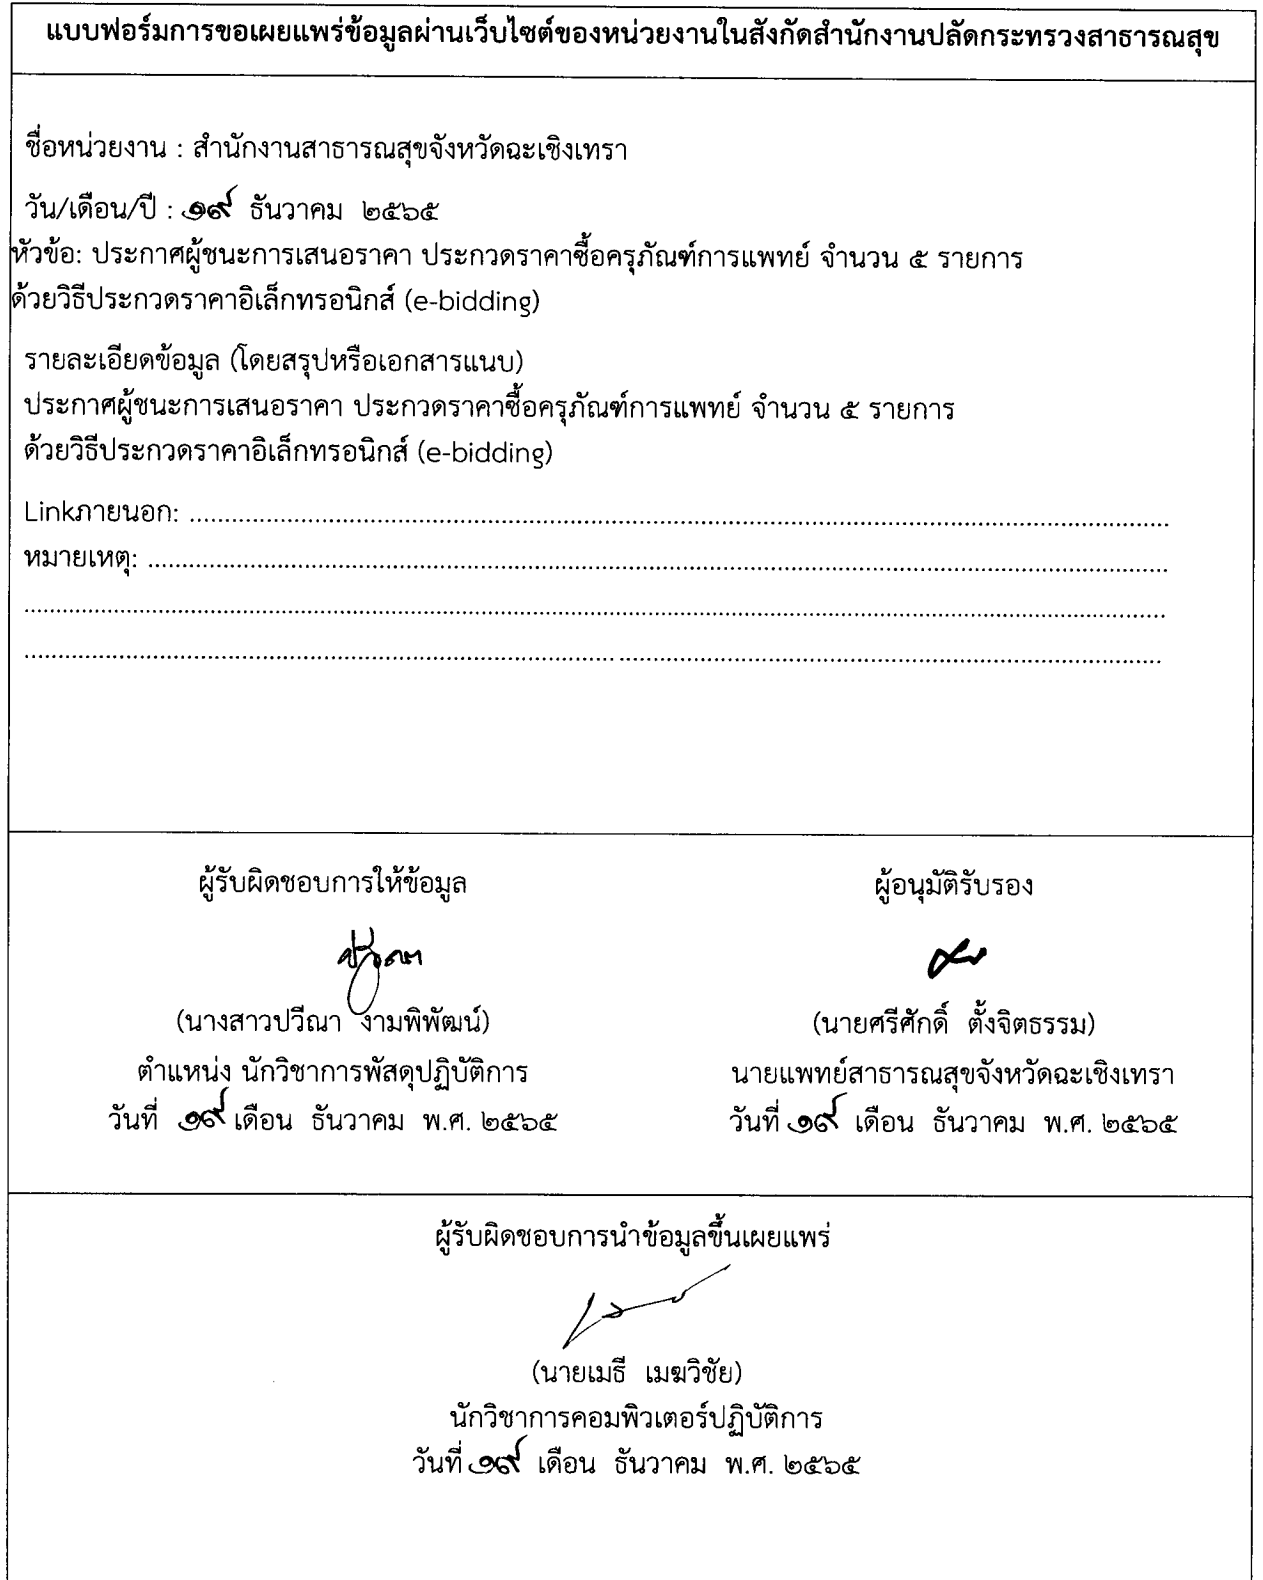 แบบฟอร์มการขอเผยแพร่ข้อมูลผ่านเว็บไซต์ของหน่วยงานในสังกัดสำนักงานปลัดกระทรวงสาธารณสุข
ชื่อหน่วยงาน : สำนักงานสาธารณสุขจังหวัดฉะเชิงเทรา
วัน/เดือน/ปี : ๑๙ ธันวาคม ๒๕๖๕
หัวข้อ: ประกาศผู้ชนะการเสนอราคา ประกวดราคาซื้อครุภัณฑ์การแพทย์ จำนวน ๕ รายการ
ด้วยวิธีประกวดราคาอิเล็กทรอนิกส์ (e-bidding)
รายละเอียดข้อมูล (โดยสรุปหรือเอกสารแนบ)
ประกาศผู้ชนะการเสนอราคา ประกวดราคาซื้อครุภัณฑ์การแพทย์ จำนวน ๕ รายการ
ด้วยวิธีประกวดราคาอิเล็กทรอนิกส์ (e-bidding)
Linkภายนอก: ........................................................................
หมายเหตุ: ........................................................................
........................................................................
........................................................................
ผู้รับผิดชอบการให้ข้อมูล
(นางสาวปวีณา งามพิพัฒน์)
ตำแหน่ง นักวิชาการพัสดุปฏิบัติการ
วันที่ ๑๙ เดือน ธันวาคม พ.ศ. ๒๕๖๕
ผู้อนุมัติรับรอง
(นายศรีศักดิ์ ตั้งจิตธรรม)
นายแพทย์สาธารณสุขจังหวัดฉะเชิงเทรา
วันที่ ๑๙ เดือน ธันวาคม พ.ศ. ๒๕๖๕
ผู้รับผิดชอบการนำข้อมูลขึ้นเผยแพร่
(นายเมธี เมฆวิชัย)
นักวิชาการคอมพิวเตอร์ปฏิบัติการ
วันที่ ๑๙ เดือน ธันวาคม พ.ศ. ๒๕๖๕